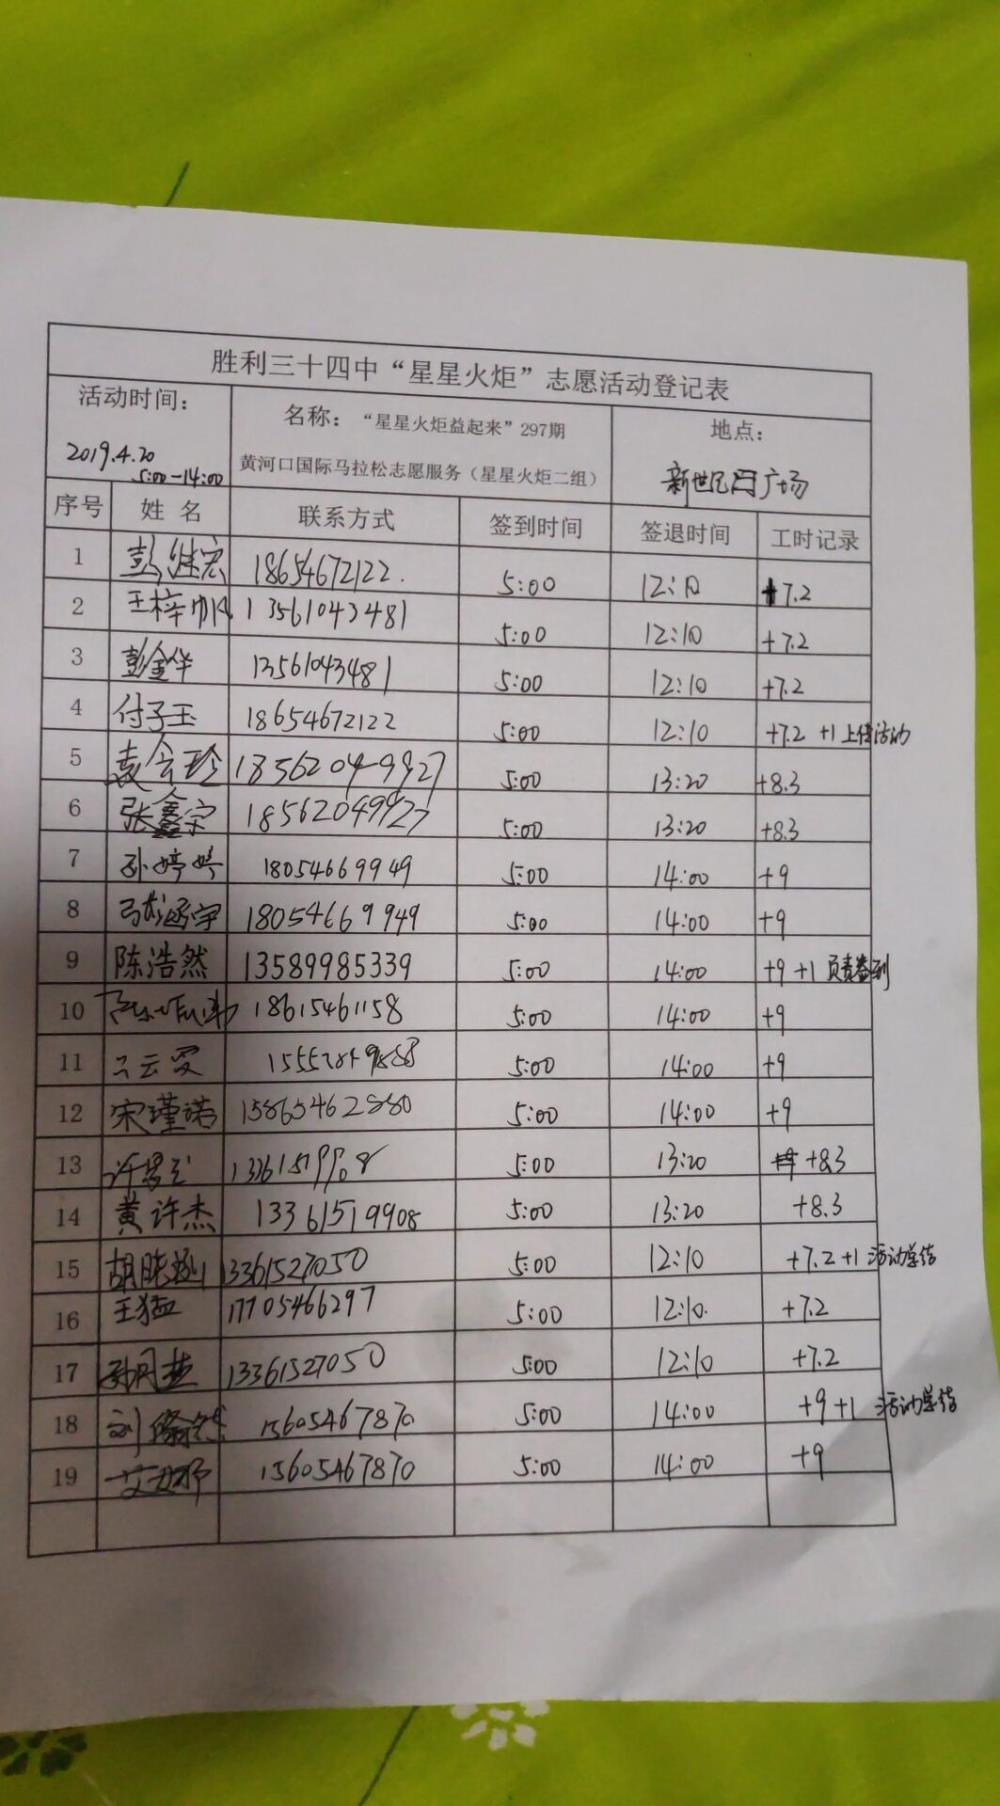 胜利三十四中“星星火炬”志愿活动登记表
活动时间: 名称: “星星火炬益起来”297期 地点:
2019.4.20 5:00-14:00 黄河口国际马拉松志愿服务（星星火炬二组） 新世纪广场
序号 姓 名 联系方式 签到时间 签退时间 工时记录
1 彭继宏 18654672122. 5:00 12:10 +7.2
2 王梓帆 13561043481 5:00 12:10 +7.2
3 彭金华 13561043481 5:00 12:10 +7.2
4 付子玉 18654672122 5:00 12:10 +7.2 +1 上传活动
5 袁会珍 18562049927 5:00 13:20 +8.3
6 张鑫宗 18562049927 5:00 13:20 +8.3
7 孙婷婷 18054669949 5:00 14:00 +9
8 18054669949 5:00 14:00 +9
9 陈浩然 13589985339 5:00 14:00 +9 +1 负责签到
10 18615461158 5:00 14:00 +9
11 5:00 14:00 +9
12 宋瑾诺 15865462880 5:00 14:00 +9
13 13361519908 5:00 13:20 +8.3
14 黄许杰 13361519908 5:00 13:20 +8.3
15 13361527050 5:00 12:10 +7.2 +1 活动总结
16 王猛 17705466297 5:00 12:10. +7.2
17 13361527050 5:00 12:10 +7.2
18 15605467870 5:00 14:00 +9 +1 活动总结
19 15605467870 5:00 14:00 +9